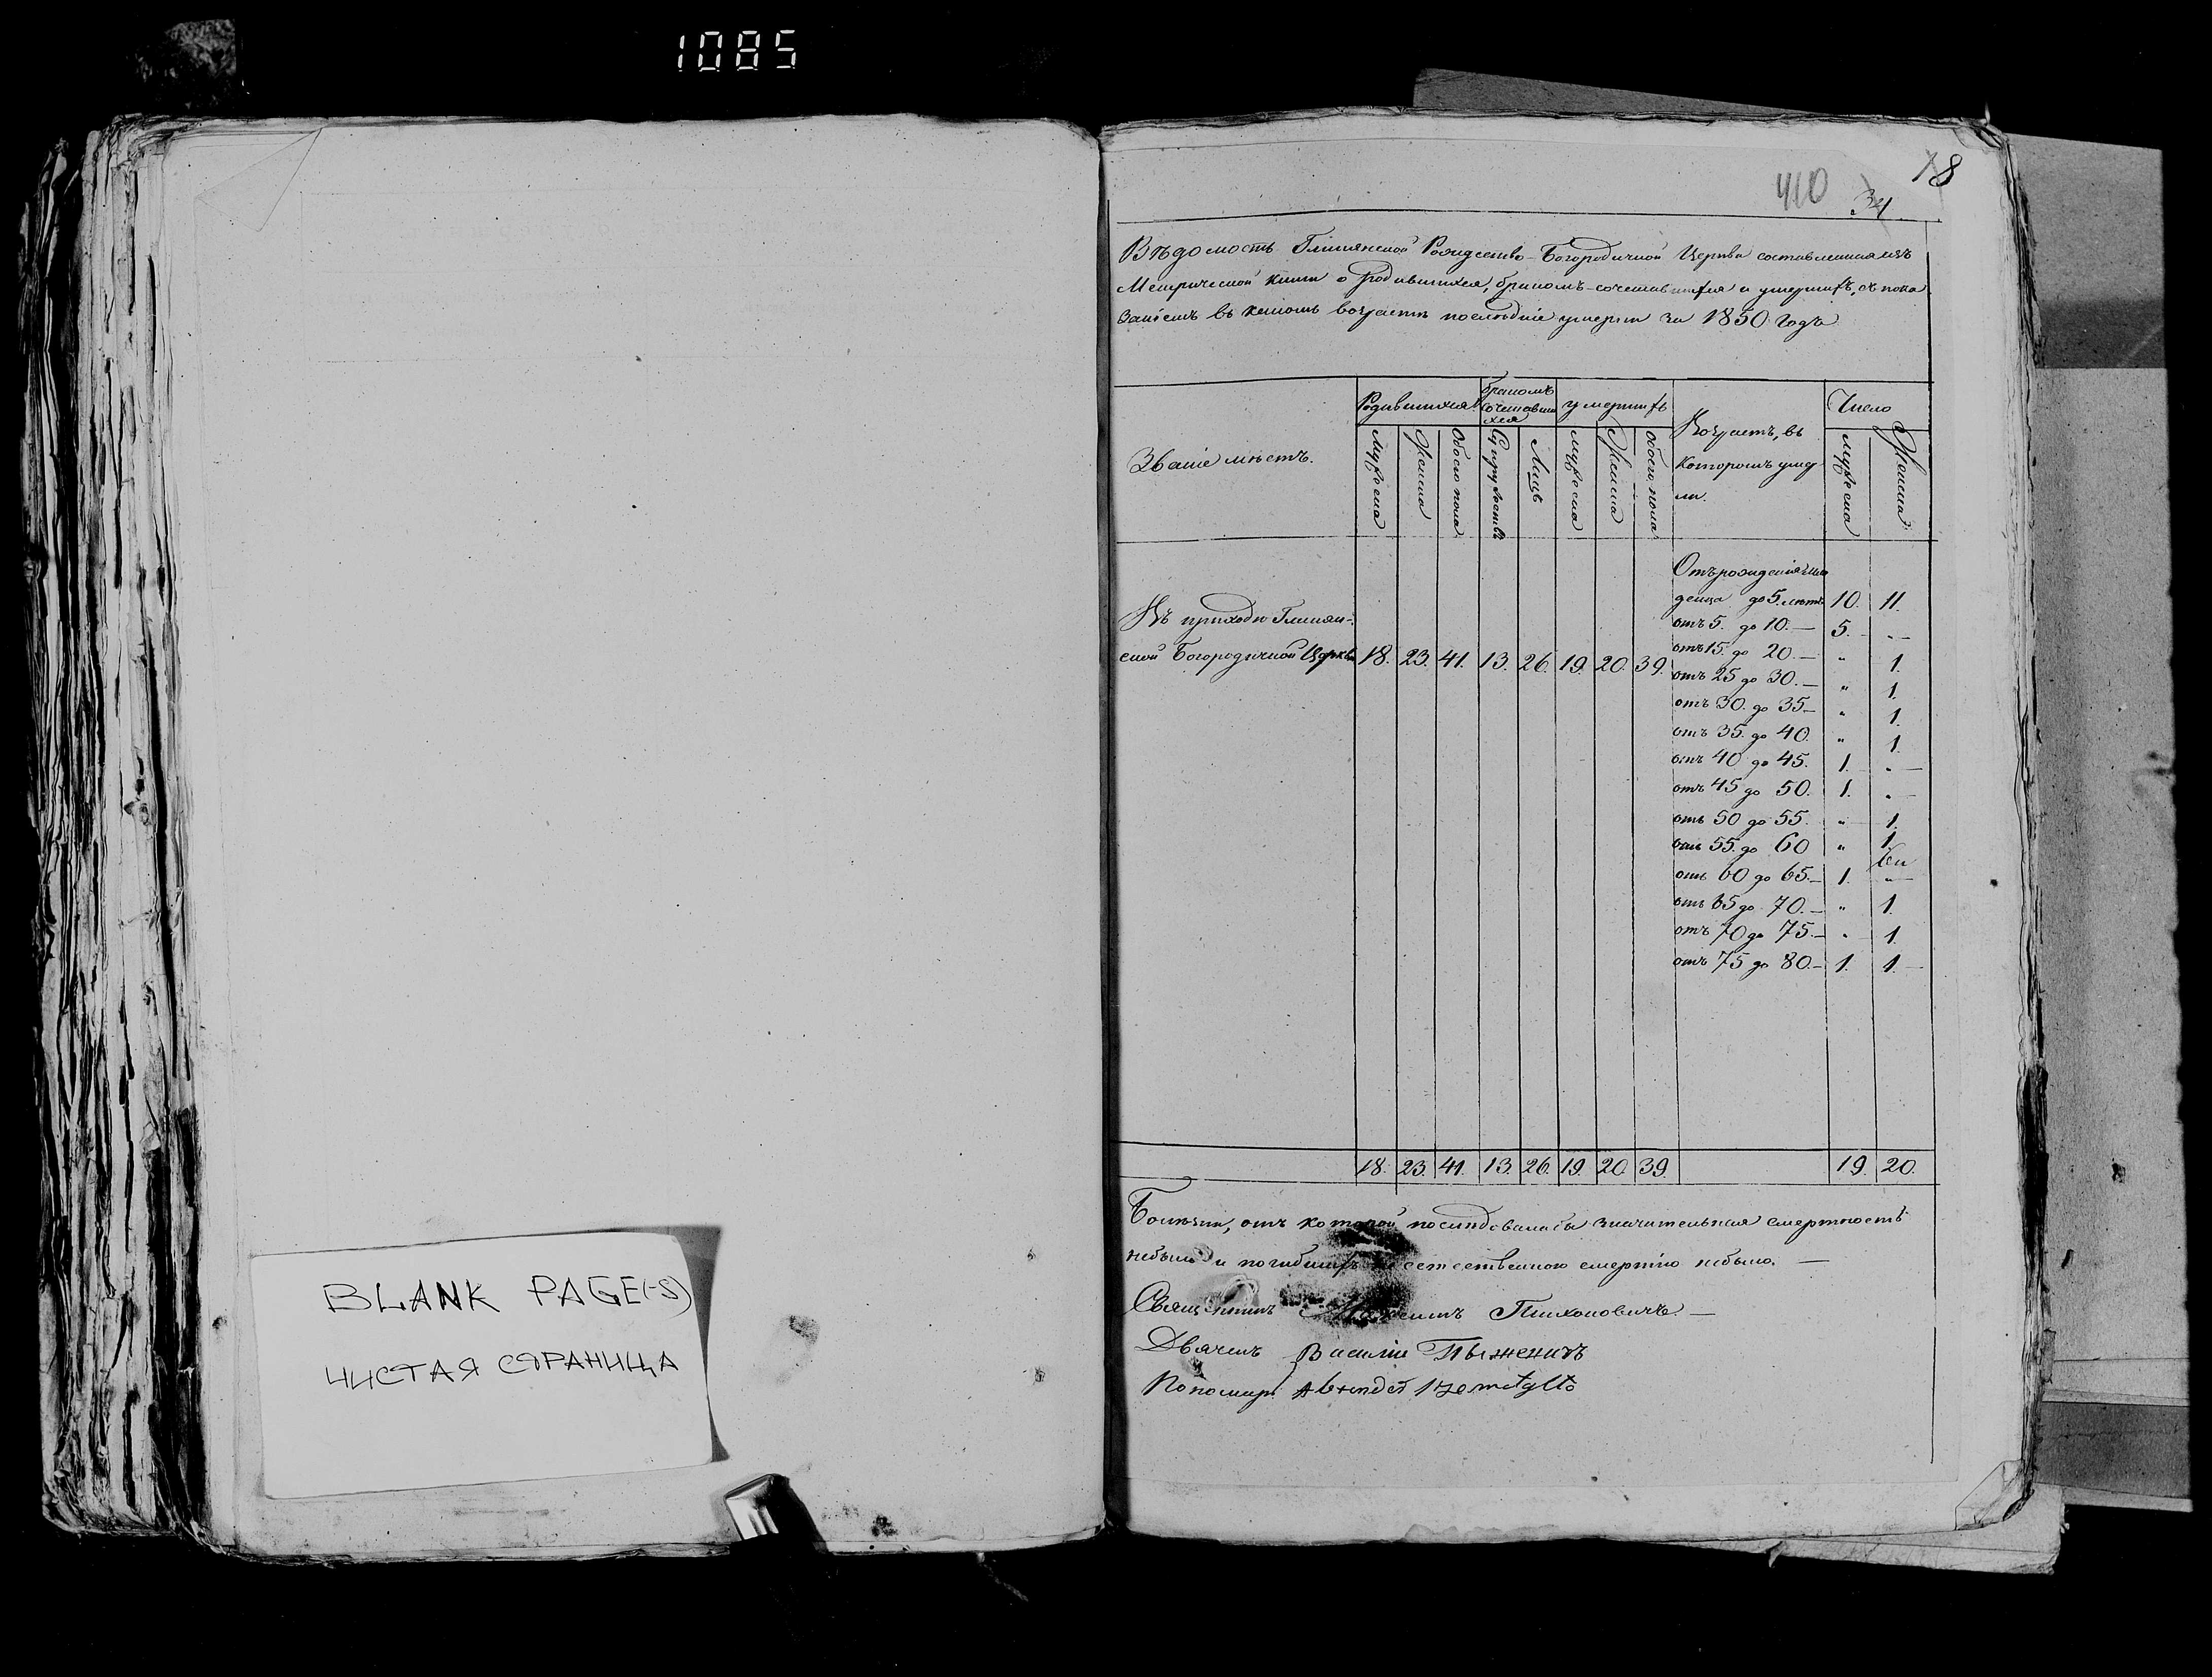 1085
BLANK PAGE(-S)
ЧИСТАЯ СТРАНИЦА
410
34
18
Вѣдомость Глинянской Рождество-Богородичной Церкви составленная изъ
Метрической книги о родившихся, бракомъ-сочетавшихся и умершихъ, съ пока
заніемъ въ какомъ возрастѣ послѣдніе умерли за 1850 годъ
Званіе мѣстъ.
Родившихся
бракомъ
сочетавши
хся
умершихъ
Возрастъ, въ
которомъ умер
ли.
Число
Мужеска
Женска
Обоего пола
Супружествъ
Лицъ
Мужеска
Женска
Обоего пола
Мужеска
Женска
Въ приходѣ Глинян-
ской Богородичной Церкви 18. 23. 41. 13. 26. 19. 20. 39.
Отъ рожденія мла
денца до 5. лѣтъ 10. 11.
отъ 5. до 10.— 5. „—
отъ 15. до 20.— „ 1.
отъ 25 до 30.— „ 1.
отъ 30. до 35— „ 1.
отъ 35. до 40. „ 1.
отъ 40 до 45. 1. „—
отъ 45 до 50. 1. „—
отъ 50 до 55. „ 1.
отъ 55. до 60 „ 1.
отъ 60 до 65.— 1. „—
отъ 65 до 70.— „ 1.
отъ 70 до 75.— „ 1.
отъ 75 до 80.— 1. 1.—
18. 23. 41. 13. 26. 19. 20. 39. 19. 20.
Болѣзни, отъ которой послѣдовала бы значительная смертность
небыло и погибшихъ неестественною смертію небыло.—
Священникъ Тихоновичъ.—
Дьячекъ Василій
Пономарь